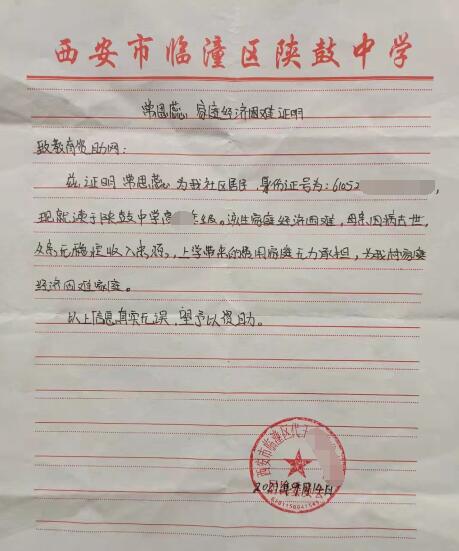 西安市临潼区陕鼓中学
常思蕊 家庭经济困难证明
致教育资助网：
兹证明 常思蕊 为我社区居民，身份证号为：61052
现就读于陕鼓中学高 年级。该生家庭经济困难，母亲因病去世，
父亲无稳定收入来源，上学带来的费用家庭无力承担，为我村家庭
经济困难家庭。
以上信息真实无误，望予以资助。
西安市临潼区代
2021年 月14日